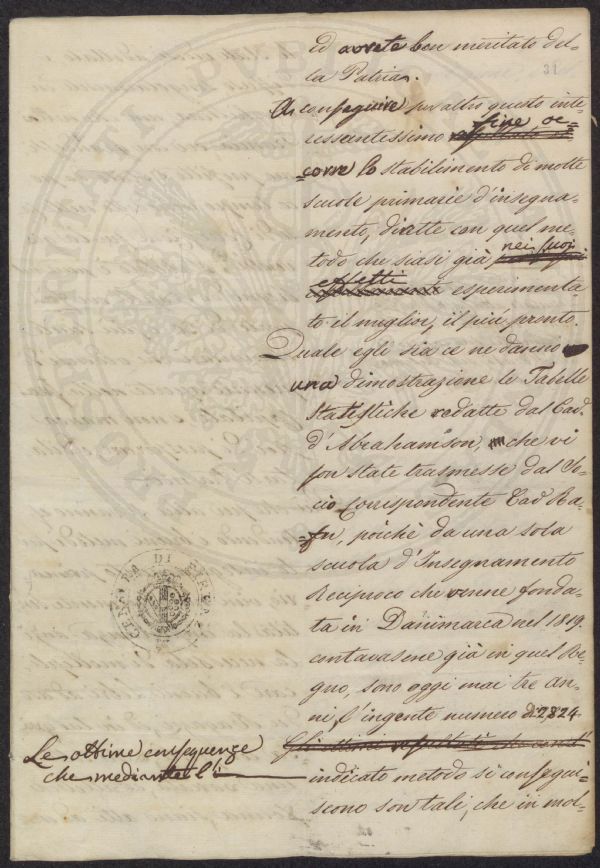 31
ed avrete ben meritato del-
la Patria.
A conseguire per altro questo inte-
fine oc-
ressantissimo
=corre lo stabilimento di molte
scuole primarie d'insegna-
mento, dirette con quel me-
nei suoi
todo che siasi già
effetti
esperimenta-
to il miglior, il più pronto.
Quale egli sia ce ne danno
una dimostrazione le Tabelle
Statistiche redatte dal Cav.
d'Abrahamson, che vi
son state trasmesse dal So-
cio Corrispondente Cav Ra-
=fn, poichè da una sola
scuola d'Insegnamento
Reciproco che venne fonda-
ta in Danimarca nel 1819.
contavasene già in quel Re-
gno, sono oggi mai tre an-
ni, l'ingente numero di 2824
Gli ottimi resultati che con l'
Le ottime conseguenze
che mediante l'i
indicato metodo si consegui-
scono son tali, che in mol-
CENSURA DI FIRENZE